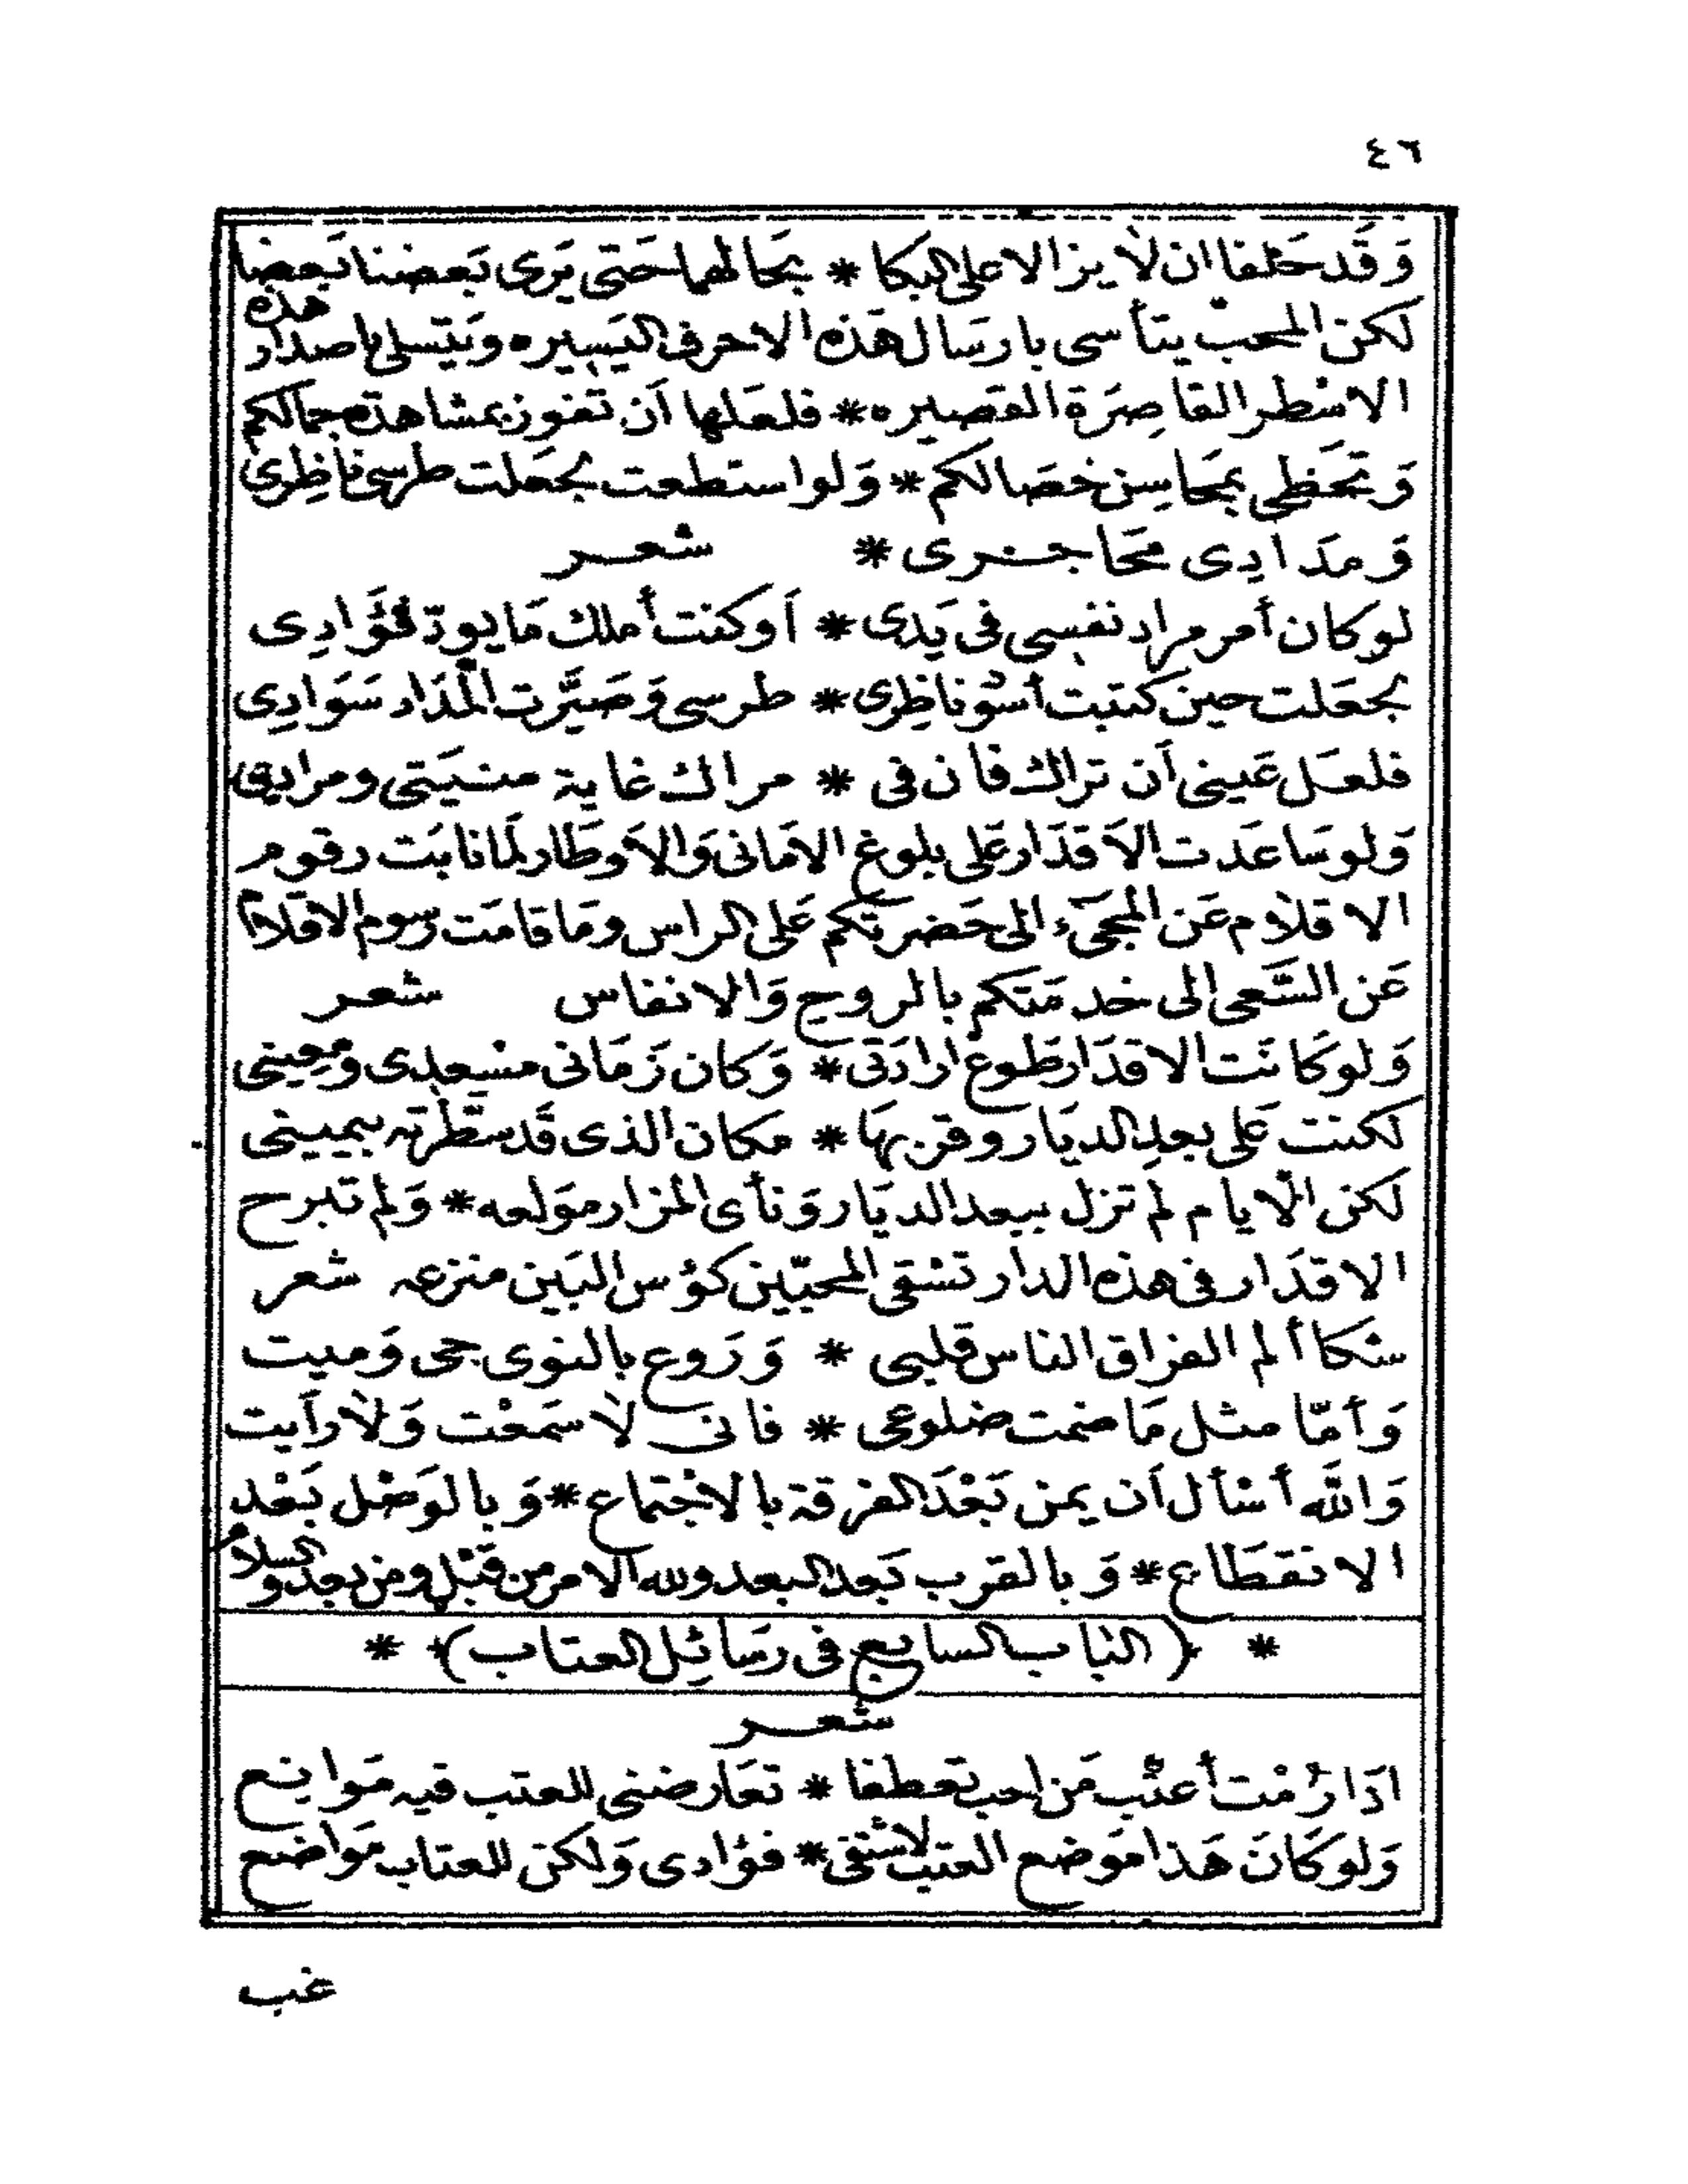 ٤٦
وَقَد حَلفا ان لا يزالا على البكا * بحالهما حَتى يَرى بَعضنا بَعضا
لكن المحب يتأسى بارسَال هَذه الاحرف اليَسيره ونَيتسلى باصدار هذه
الاسْطر القاصِرَة القصيره * فلعَلها أن تفوز بمشاهدة جمالكم
وَتحَظى بمحَاسِن خصَالكم * وَلو استطعت لجعَلت طرسى ناظِرى
وَمدَادِى محَاجرى * شعر
لو كان أمر مراد نفسى فى يَدى * أو كنت أملك مَا يودّ فؤَادِى
لجعَلت حين كتبت أسْو ناظِرى * طرسى وَصَيَّرت المْدَاد سَوَادِى
فلعَل عَينى أن تراك فان فى * مراك غاية منيَتى ومرادِى
وَلو سَاعَدت الاَقدَار عَلى بلوغ الاَمانى وَالاَوطَار لمَا نابَت رقوم
الاقلام عَن المجىء الى حَضرتكم عَلى الراس ومَا قامَت رسوم الاقلام
عَن السَّعى الى خدمَتكم بالروح وَالانفاس شعر
وَلو كَانَت الاقدَار طَوع ارادَتى * وَكان زَمَانى مسْعدِى ومعِينى
لكنت عَلى بعدِ الديَار وقربهَا * مكان الذى قَد سَطَّرته بيمينى
لكن الْايام لم تزل ببعد الديَار وَنأى المزار موَلعه * وَلم تبرح
الاقدَار فى هذه الدار تسْقى المحبّين كؤس البَين منزعه شعر
سْكا ألم الفراق الناس قلبى * وَرَوع بالنوى حى وَميت
وَأمّا مثل مَا ضمت ضلوعى * فانى لا سَمعْت وَلا رأيت
وَاللَّه أسْأل أن يمن بَعْدَ الفرقة بالاجْتماع * وَبالوَصْل بَعْد
الانقطَاع * وَبالقرب بَعد البعد ولله الامر من قَبْل ومن بعد والسلام
* ﴿الباب السابع فى رسَائِل العتاب﴾ *
شعر
اذَا رُمْت أعتْب مَن احب تعطفا * تعَارضنى للعتب فيه مَوانع
وَلو كَانَ هَذا مَوضع العتب لاشْتفى * فؤادى وَلكن للعتاب مَواضع
غب